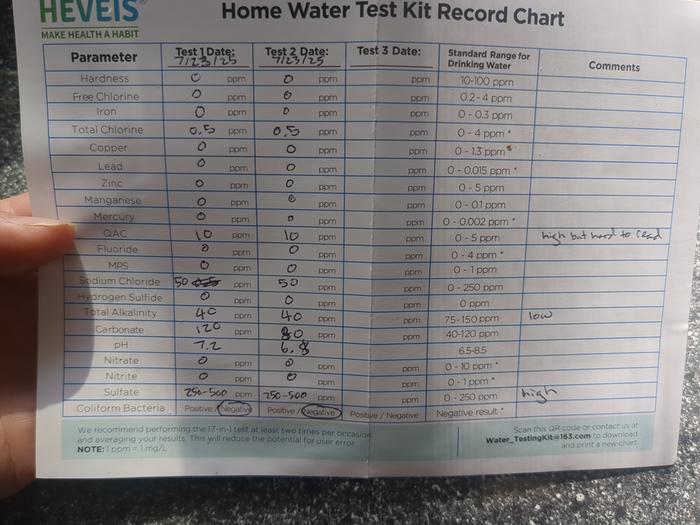 HEVEIS
MAKE HEALTH A HABIT
Home Water Test Kit Record Chart
Parameter Test 1 Date: 7/23/25 Test 2 Date: 7/23/25 Test 3 Date: Standard Range for Drinking Water Comments
Hardness 0 ppm 0 ppm ppm 10-100 ppm
Free Chlorine 0 ppm 0 ppm ppm 0.2-4 ppm
Iron 0 ppm 0 ppm ppm 0-0.3 ppm
Total Chlorine 0.5 ppm 0.5 ppm ppm 0-4 ppm *
Copper 0 ppm 0 ppm ppm 0-1.3 ppm *
Lead 0 ppm 0 ppm ppm 0-0.015 ppm *
Zinc 0 ppm 0 ppm ppm 0-5 ppm
Manganese 0 ppm 0 ppm ppm 0-0.1 ppm
Mercury 0 ppm 0 ppm ppm 0-0.002 ppm *
QAC 10 ppm 10 ppm ppm 0-5 ppm high but hard to read
Fluoride 0 ppm 0 ppm ppm 0-4 ppm *
MPS 0 ppm 0 ppm ppm 0-1 ppm
Sodium Chloride 50 ppm 50 ppm ppm 0-250 ppm
Hydrogen Sulfide 0 ppm 0 ppm ppm 0 ppm
Total Alkalinity 40 ppm 40 ppm ppm 75-150 ppm low
Carbonate 120 ppm 80 ppm ppm 40-120 ppm
pH 7.2 6.8 6.5-8.5
Nitrate 0 ppm 0 ppm ppm 0-10 ppm *
Nitrite 0 ppm 0 ppm ppm 0-1 ppm *
Sulfate 250-500 ppm 250-500 ppm ppm 0-250 ppm high
Coliform Bacteria Positive / Negative Positive / Negative Positive / Negative Negative result *
We recommend performing the 17-in-1 test at least two times per occasion
and averaging your results. This will reduce the potential for user error.
NOTE: 1 ppm = 1 mg/L
Scan this QR code or contact us at
Water_TestingKit@163.com to download
and print a new chart